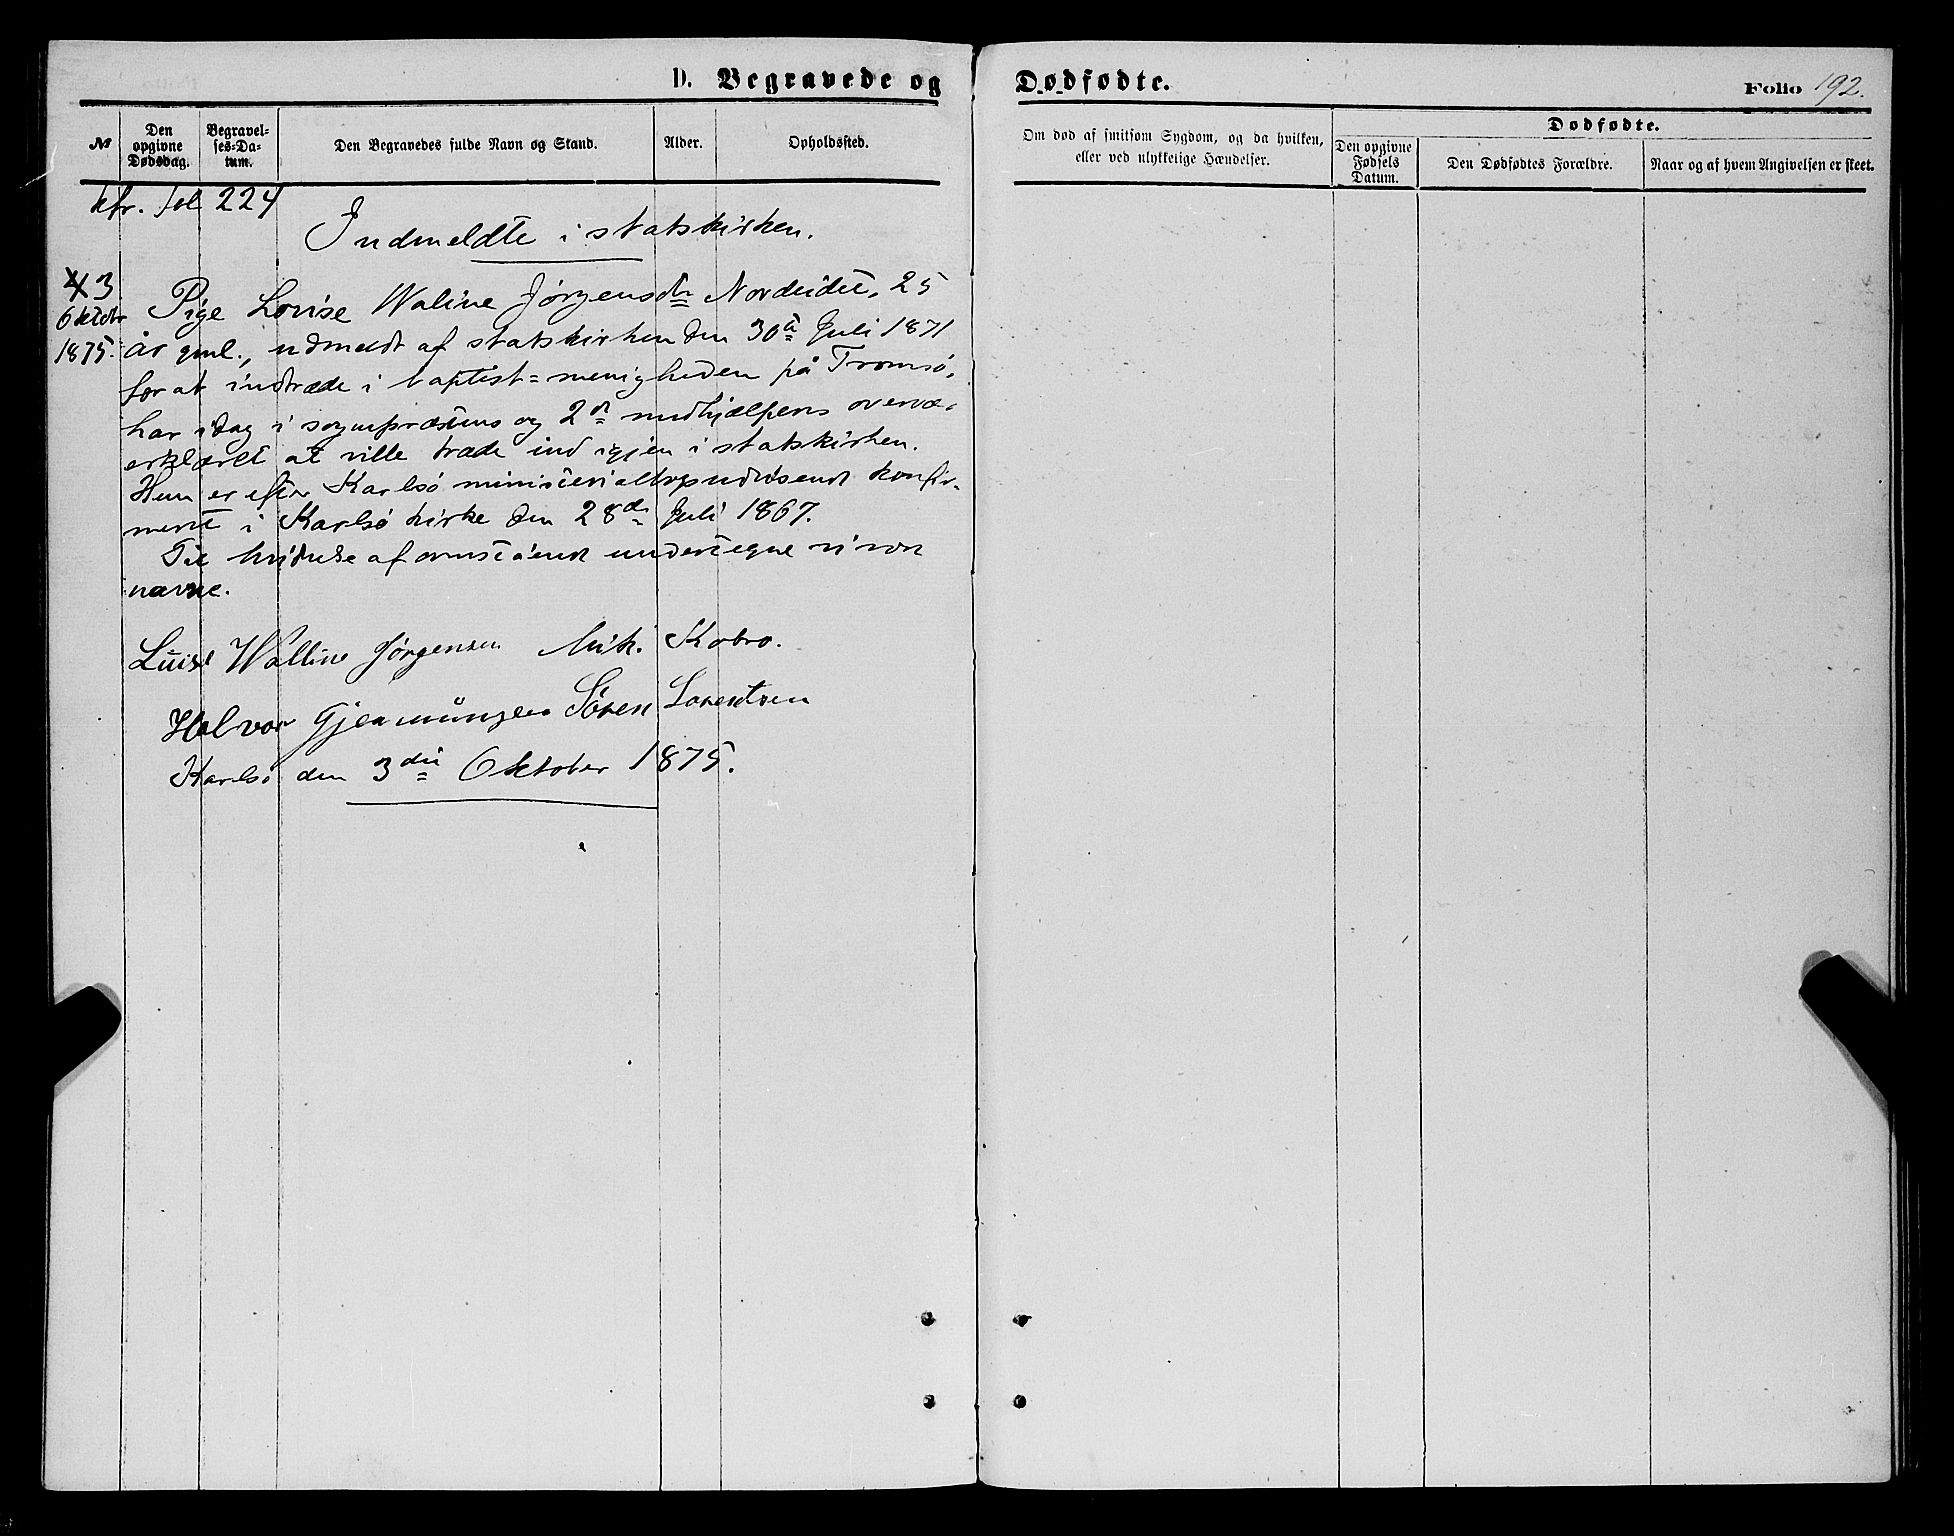 D. Begravede og Dødfødte.
Folio 192.
№
Den opgivne Dødsdag.
Begravel-ses-Da-tum.
Den Begravedes fulde Navn og Stand.
Alder.
Opholdssted.
Om død af smitsom Sygdom, og da hvilken, eller ved ulykkelige Hændelser.
Dødfødte.
Den opgivne Fødsels Datum.
Den Dødfødtes Forældre.
Naar og af hvem Angivelsen er skeet.
kfr. fol 224
Indmeldte i statskirken.
3 Oktobr 1875.
Pige Lovise Waline Jørgensdtr Nordeidet, 25
år gml., udmeldt af statskirken den 30te Juli 1871
for at indtræde i baptist=menigheden på Tromsø,
har idag i sognepræstens og 2de medhjælperes overvæ.
erklæret at ville træde ind igjen i statskirken.
Hun er efter Karlsø ministerialbogs udvisende konfir-
meret i Karlsø kirke den 28de Juli 1867.
Til bevidnelse af ovenstående undertegne vi vore
navne.
Luise Walline Jørgensen Mik. Kobro.
Halvor Søren Lorentsen
Karlsø den 3die Oktober 1875.